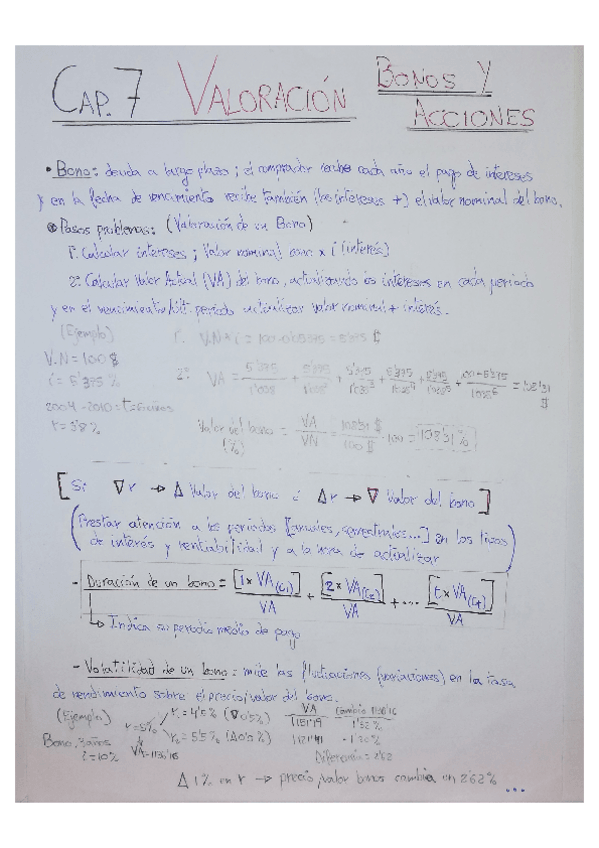 CAP. 7 VALORACIÓN BONOS Y
ACCIONES
• Bono: deuda a largo plazo; el comprador recibe cada año el pago de intereses
y en la fecha de vencimiento recibe también (los intereses +) el valor nominal del bono.
Pasos problemas: (Valoración de un Bono)
1º Calcular intereses; Valor nominal bono x i (interés)
2º Calcular Valor Actual (VA) del bono, actualizando los intereses en cada periodo
y en el vencimiento/últ. periodo actualizar valor nominal + interés.
(Ejemplo)
V.N = 100 $
i = 5'375 %
2004 - 2010 = t = 6 años
r = 3'8 %
1º V.N x i = 100 · 0'05375 = 5'375 $
2º VA =
Valor del bono (%) = VA/VN = 108'31 $/100 $ · 100 = 108'31 %
[Si ∇ r → Δ Valor del bono ó Δ r → ∇ Valor del bono]
(Prestar atención a los periodos [anuales, semestrales...] en los tipos
de interés y rentabilidad y a la hora de actualizar)
- Duración de un bono = [1 x VA(C1)]/VA + [2 x VA(C2)]/VA + ... [t x VA(Ct)]/VA
↳ Indica su periodo medio de pago
- Volatilidad de un bono: mide las fluctuaciones (variaciones) en la tasa
de rendimiento sobre el precio/valor del bono.
(Ejemplo)
Bono, 3 años
i = 10%
r = 5%
VA = 1136'16
r1 = 4'5% (∇0'5%)
r2 = 5'5% (Δ0'5%)
VA
1151'19
1121'41
Cambio 1136'16
1'32 %
- 1'30 %
Diferencia = 2'62
Δ 1% en r → precio/valor bonos cambia un 2'62% ...